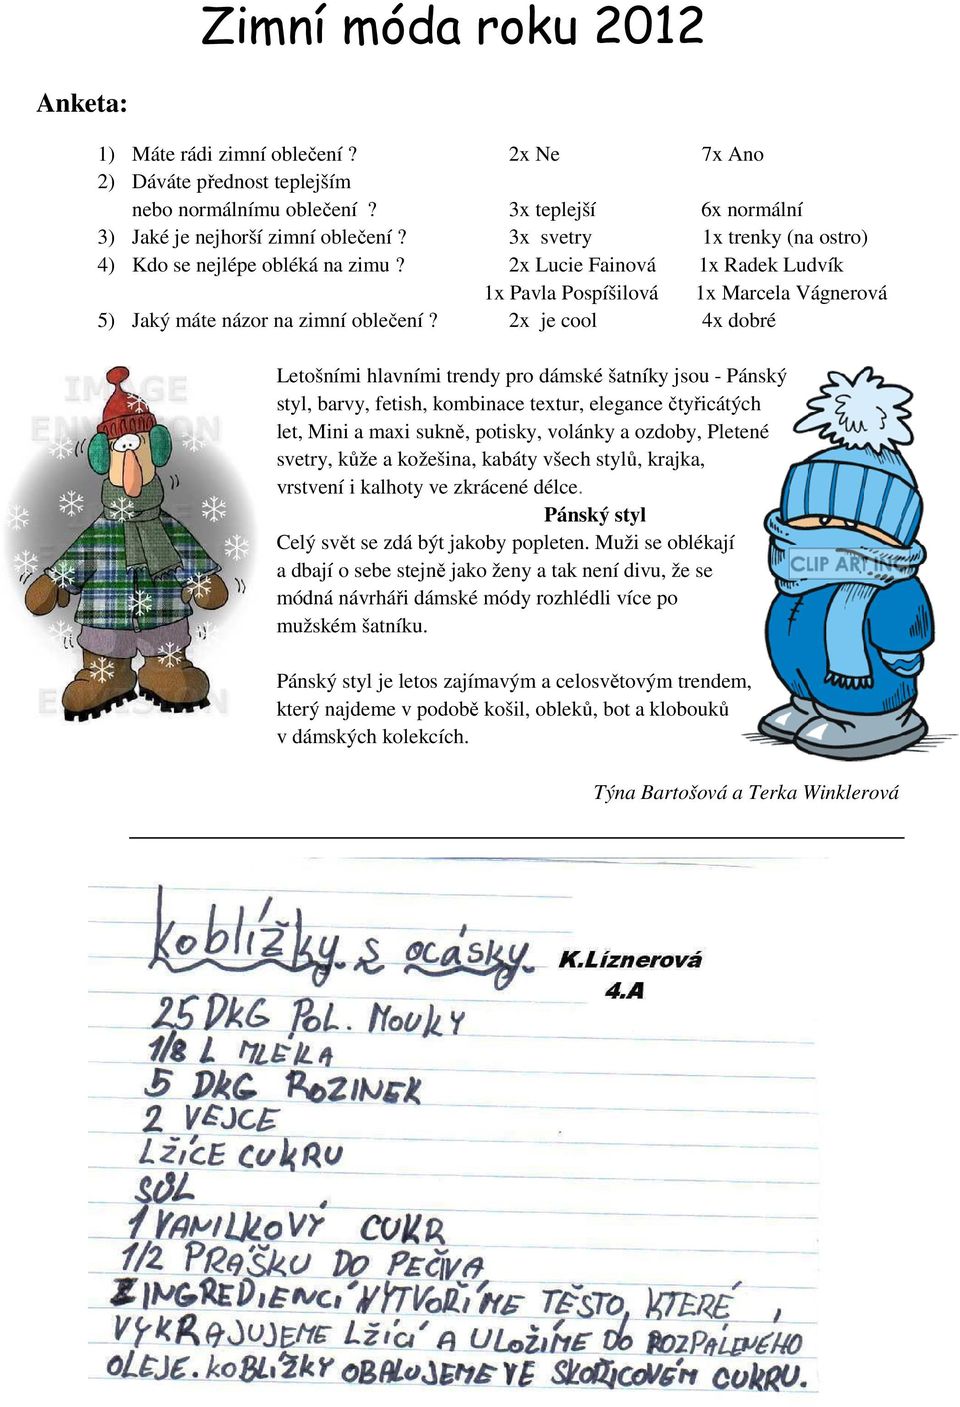 Zimní móda roku 2012
Anketa:
1) Máte rádi zimní oblečení ? 2x Ne 7x Ano
2) Dáváte přednost teplejším
nebo normálnímu oblečení ? 3x teplejší 6x normální
3) Jaké je nejhorší zimní oblečení ? 3x svetry 1x trenky (na ostro)
4) Kdo se nejlépe obléká na zimu ? 2x Lucie Fainová 1x Radek Ludvík
1x Pavla Pospíšilová 1x Marcela Vágnerová
5) Jaký máte názor na zimní oblečení ? 2x je cool 4x dobré
Letošními hlavními trendy pro dámské šatníky jsou - Pánský
styl, barvy, fetish, kombinace textur, elegance čtyřicátých
let, Mini a maxi sukně, potisky, volánky a ozdoby, Pletené
svetry, kůže a kožešina, kabáty všech stylů, krajka,
vrstvení i kalhoty ve zkrácené délce.
Pánský styl
Celý svět se zdá být jakoby popleten. Muži se oblékají
a dbají o sebe stejně jako ženy a tak není divu, že se
módná návrháři dámské módy rozhlédli více po
mužském šatníku.
Pánský styl je letos zajímavým a celosvětovým trendem,
který najdeme v podobě košil, obleků, bot a klobouků
v dámských kolekcích.
IMAGE
ENVESION
CLIP ART INC
Týna Bartošová a Terka Winklerová
koblížky s ocásky
K.Líznerová
4.A
25 DKG POL. MOUKY
1/8 L MLÉKA
5 DKG ROZINEK
2 VEJCE
LŽÍCE CUKRU
SŮL
1 VANILKOVÝ CUKR
1/2 PRÁŠKU DO PEČIVA
Z INGREDIENCÍ VYTVOŘÍME TĚSTO, KTERÉ,
VYKRAJUJEME LŽÍCÍ A ULOŽÍME DO ROZPÁLENÉHO
OLEJE. KOBLÍŽKY OBALUJEME VE SKOŘICOVÉM CUKRU.